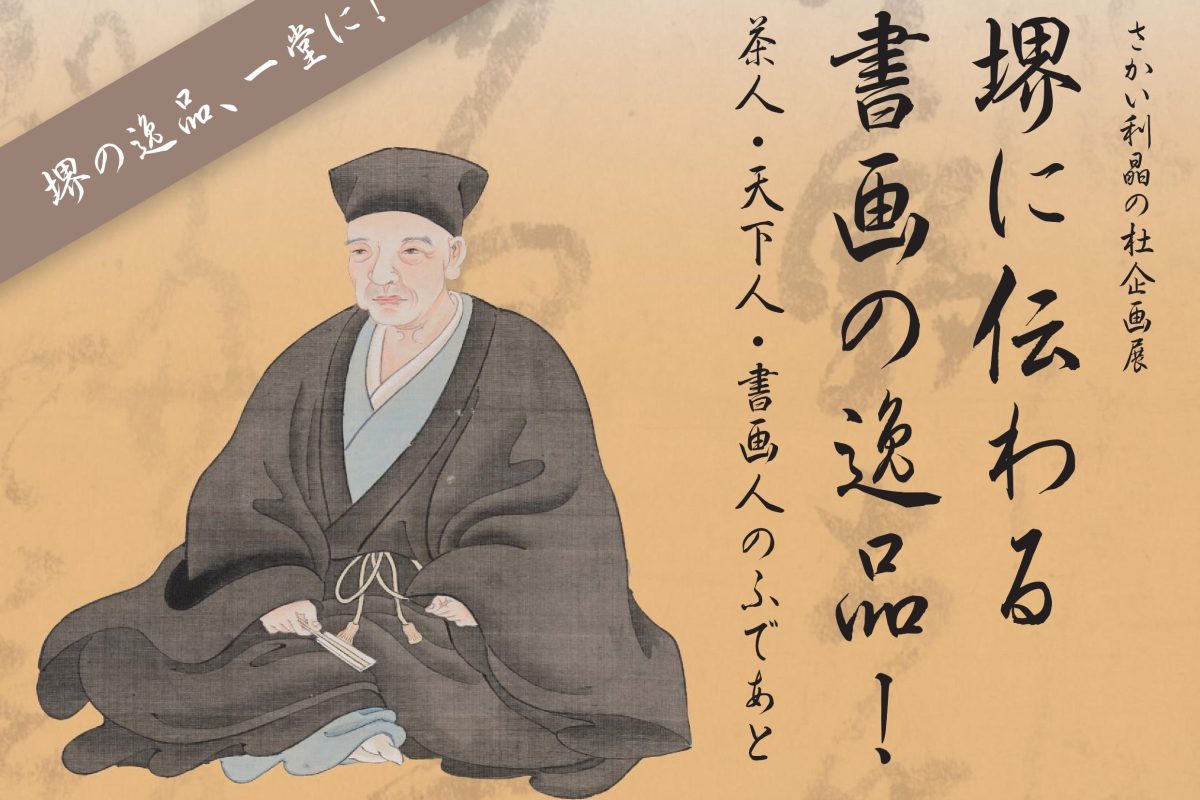 堺の逸品、一堂に!
さかい利晶の杜企画展
堺に伝わる
書画の逸品!
茶人・天下人・書画人のふであと